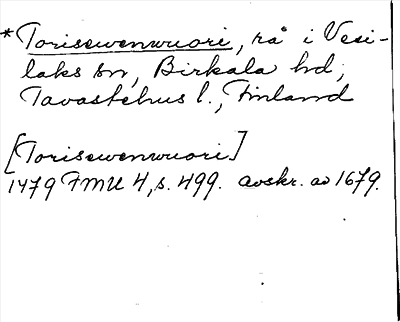 *Torisewenwuori, rå i Vesi-
laks sn, Birkala hd,
Tavastehus l., Finland
[Torisewenwuori]
1479 FMU 4, s. 499. avskr. av 1679.